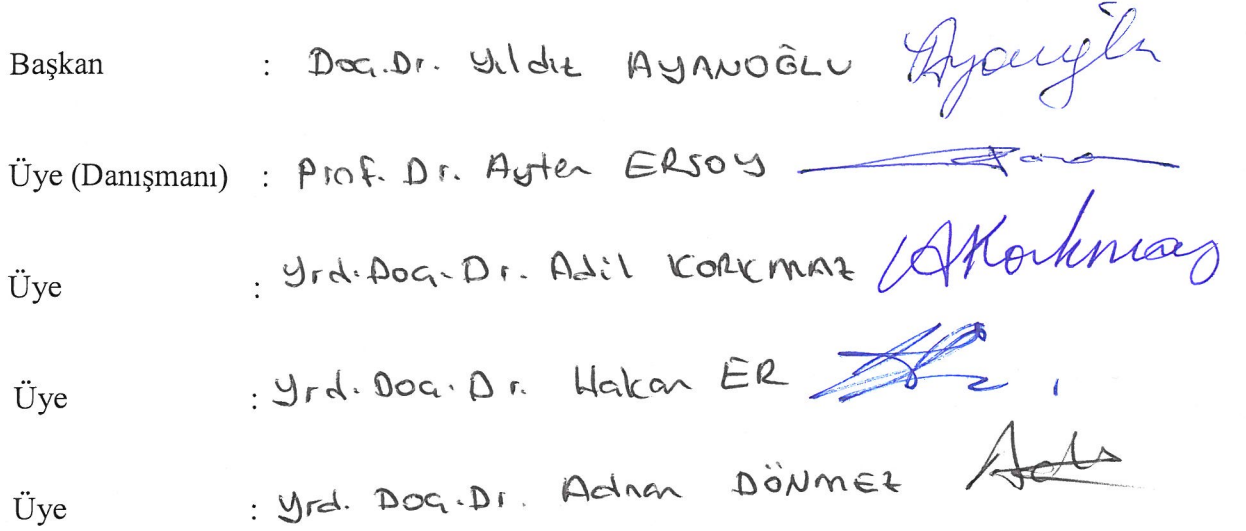 Başkan : Doç.Dr. Yıldız AYANOĞLU
Üye (Danışmanı) : Prof. Dr. Ayten ERSOY
Üye : Yrd.Doç.Dr. Adil KORKMAZ AKorkmaz
Üye : Yrd.Doç.Dr. Hakan ER
Üye : Yrd. Doç.Dr. Adnan DÖNMEZ